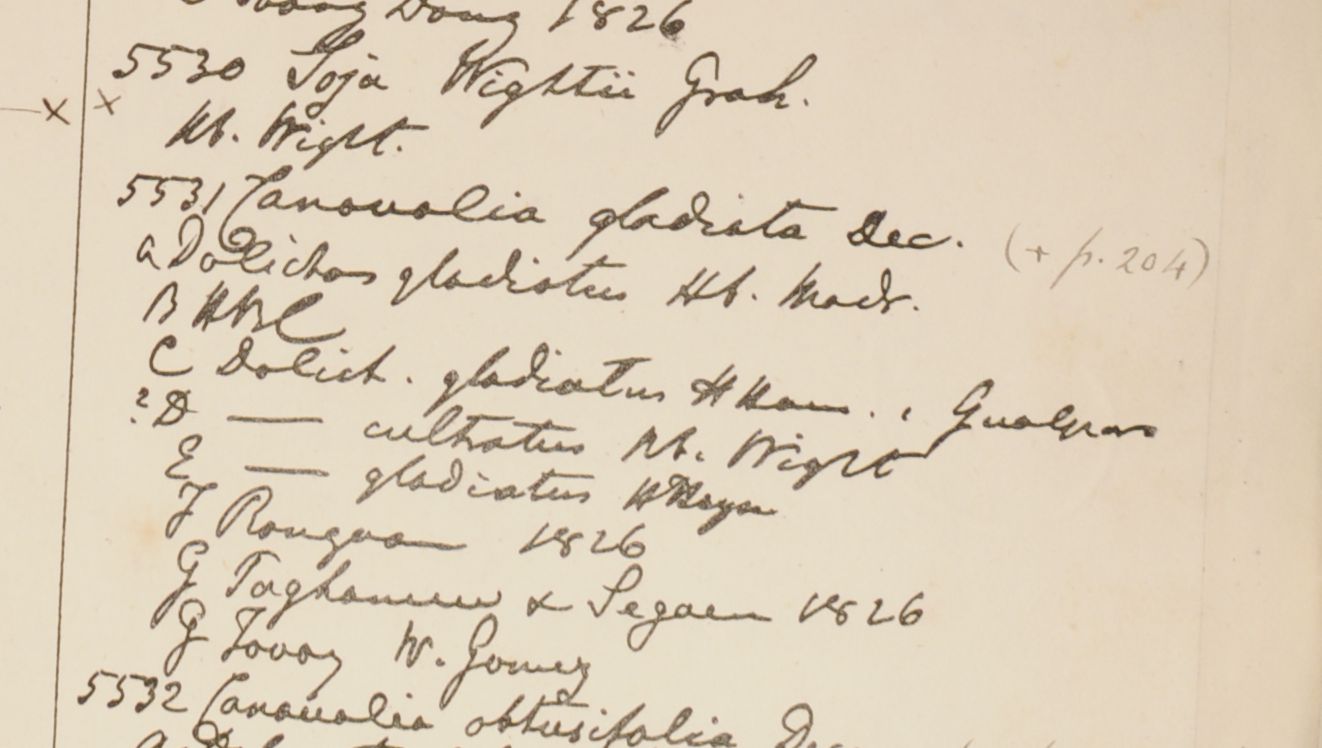 Tavoy Dong 1826
5530 Soja Wightii Grah.
x x
Hb. Wight.
5531 Canavalia gladiata Dec. (+ p. 204)
a Dolichos gladiatus Hb. Madr.
B HBC
C Dolich. gladiatus H Ham. , Gualpara
? D — cultratus Hb. Wight
E — gladiatus H Heyn
F Rangoon 1826
G & Segaen 1826
G Tavoy W. Gomez
5532 Canavalia obtusifolia Dec